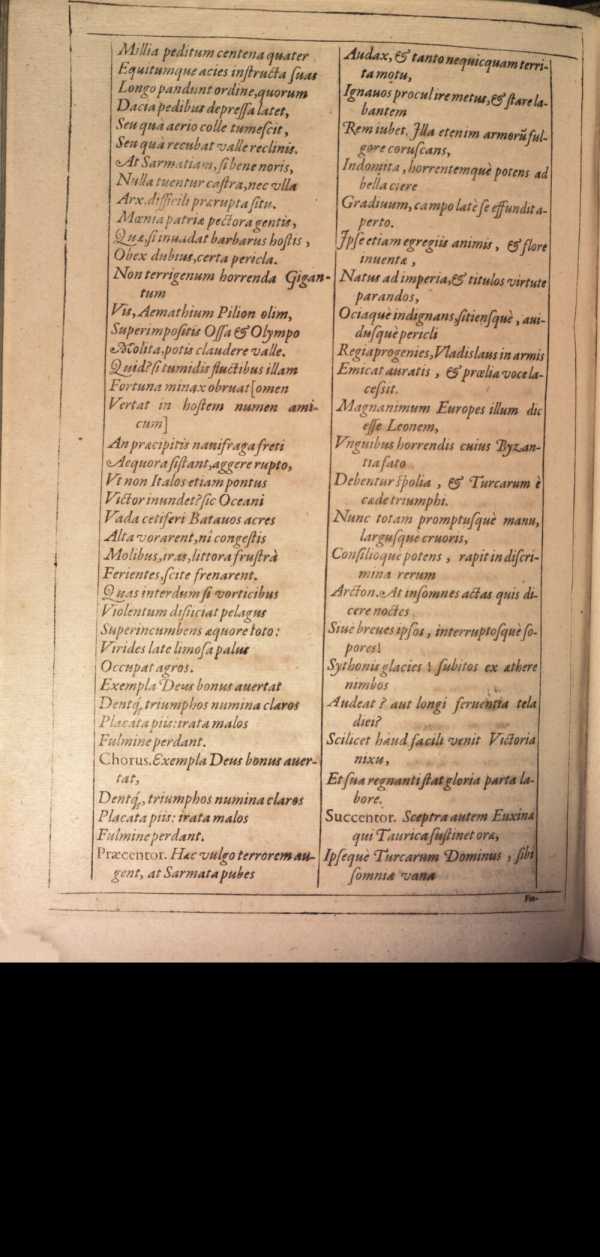 Millia peditum centena quater
Equitumque acies instructa suas
Longo pandunt ordine, quorum
Dacia pedibus depressa latet,
Seu qua aerio colle tumescit,
Seu qua recubat valle reclinis.
At Sarmatiam, si bene noris,
Nulla tuentur castra, nec vlla
Arx. difficili prærupta situ.
Mœnia patriæ pectora gentis,
Quæ, si inuadat barbarus hostis,
Obex dubius, certa pericla.
Non terrigenum horrenda Gigan-
tum
Vis, Aemathium Pilion olim,
Superimpositis Ossa & Olympo
Molita, potis claudere valle.
Quid? si tumidis fluctibus illam
Fortuna minax obruat [omen
Vertat in hostem numen ami-
cum]
An præcipitis naufraga freti
Aequora sistant, aggere rupto,
Vt non Italos etiam pontus
Victor inundet? sic Oceani
Vada cetiferi Batauos acres
Alta vorarent, ni congestis
Molibus, iras, littora frustrà
Ferientes, scite frenarent.
Quas interdum si vorticibus
Violentum disiiciat pelagus
Superincumbens æquore toto:
Virides late limosa palus
Occupat agros.
Exempla Deus bonus auertat
Dentq́, triumphos numina claros
Placata piis: irata malos
Fulmine perdant.
Chorus. Exempla Deus bonus auer-
tat,
Dentq́, triumphos numina claros
Placata piis: irata malos
Fulmine perdant.
Præcentor. Hæc vulgo terrorem au-
gent, at Sarmata pubes
Audax, & tanto nequicquam terri-
ta motu,
Ignauos procul ire metus, & stare la-
bantem
Rem iubet. Illa etenim armorū ful-
gore coruscans,
Indomita, horrentemquè potens ad
bella ciere
Gradiuum, campo latè se effundit a-
perto.
Ipse etiam egregiis animis, & flore
inuentæ,
Natus ad imperia, & titulos virtute
parandos,
Ociaquè indignans, sitiensquè, aui-
dusquè pericli
Regia progenies, Vladislaus in armis
Emicat auratis, & prælia voce la-
cessit.
Magnanimum Europes illum dic
esse Leonem,
Vnguibus horrendis cuius Byzan-
tia fato
Debentur spolia, & Turcarum è
cæde triumphi.
Nunc totam promptusquè manu,
largusquè cruoris,
Consilioquè potens, rapit in discri-
mina rerum
Arcton. At insomnes actas quis di-
cere noctes
Siue breues ipsos, interruptosquè so-
pores?
Sythonis glacies? subitos ex æthere
nimbos
Audeat? aut longi feruentia tela
diei?
Scilicet haud facili venit Victoria
nixu,
Et sua regnanti stat gloria parta la-
bore.
Succentor. Sceptra autem Euxina
qui Taurica sustinet ora,
Ipsequè Turcarum Dominus, sibi
somnia vana